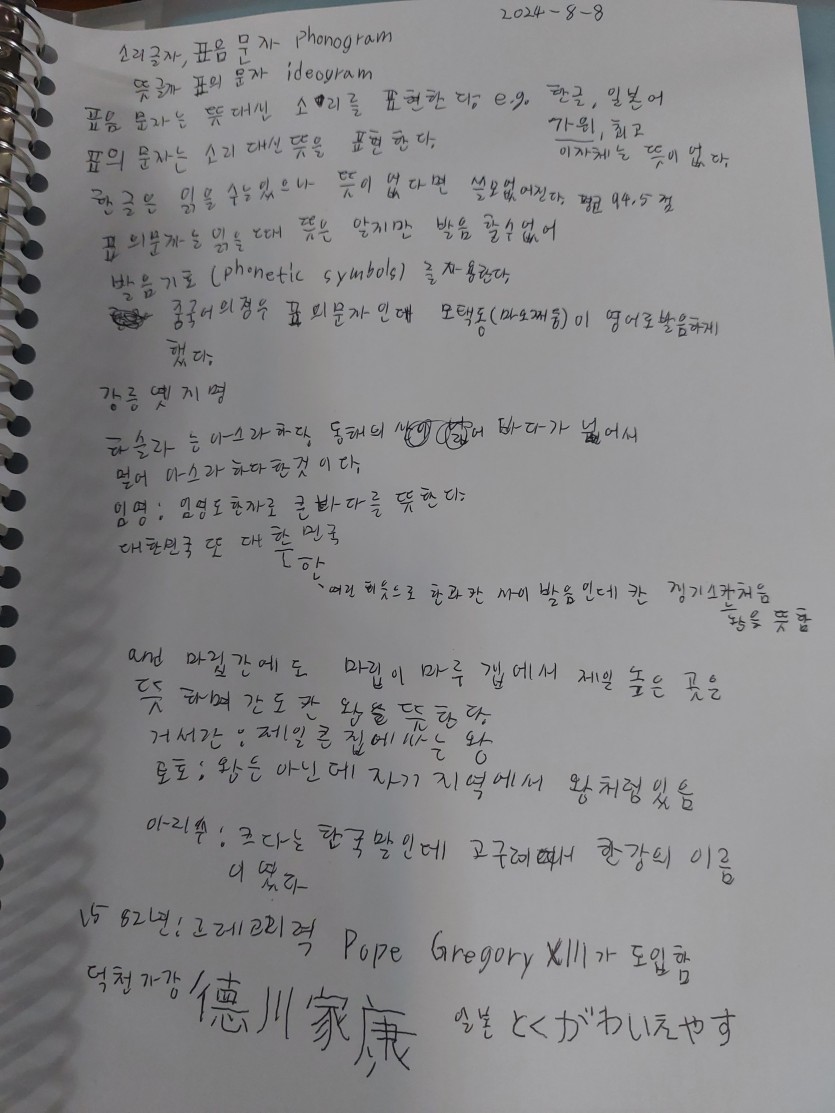 2024-8-8
소리글자, 표음 문자 phonogram
뜻글자 표의 문자 ideogram
표음 문자는 뜻 대신 소리를 표현한다. e.g. 한글, 일본어
가위, 최고
이자체는 뜻이 없다.
표의 문자는 소리 대신 뜻을 표현한다.
한글은 읽을 수는있으나 뜻이 없다면 쓸모없어진다. 평균 94.5점
표의문자는 읽을 때 뜻은 알지만 발음 할수없어
발음기호 (phonetic symbols) 를 사용한다.
중국어의경우 표의문자인데 모택동(마오쩌둥)이 영어로발음하게
했다.
강릉 옛지명
하슬라 는 아스라하다, 동해의 바다가 넓어서
멀어 아스라하다한것이다.
임명: 임명도한자로 큰바다를 뜻한다.
대한민국 또 대 민국
한
여린 히읗으로 한과칸 사이 발음인데 칸 징기스칸처음
는
왕을 뜻함
and 마립간에도 마립이 마루 갭에서 제일 높은 곳을
뜻 하며 간도칸 왕을 뜻한다.
거서간 : 제일큰집에사는 왕
토호 : 왕은 아닌데 자기 지역에서 왕처럼있음
아리수 : 크다는 한국말인데 고구려에서 한강의 이름
이었다
1582년: 그레고리력 Pope Gregory XIII가 도입함
덕천가강 德川家康 일본 とくがわいえやす